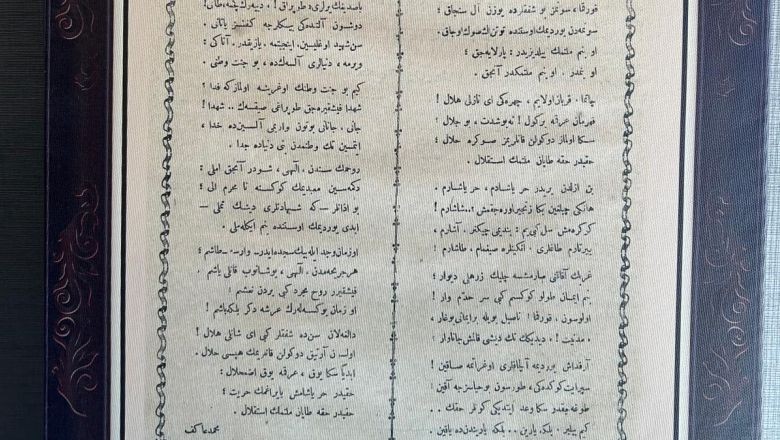 قورقما، سونمز بو شفقلرده یوزن آل سنجاق؛
سونمه‌دن یوردیمك اوستنده توتن اك صوك اوجاق.
او بنم ملتمك ییلدیزیدر؛ پارلایه‌جق؛
او بنمدر، او بنم ملتمكدر آنجق.
چاتما، قربان اولایم، چهره‌كی ای نازلی هلال!
قهرمان عرقمه بر كول! نه بو شدت، بو جلال؟
سكا اولماز دوكولن قانلریمز صوكره حلال؛
حقیدر، حقه طاپان ملتمك استقلال!
بن ازلدن بریدر حر یاشادم، حر یاشارم.
هانكی چیلغین بكا زنجیر اوره‌جقمش؟ شاشارم!
كوكره‌مش سل كبی یم؛ بندیمی چیكنر، آشارم؛
ییرتارم طاغلری، انكینلره صیغمام، طاشارم!
غربك آفاقنی صارمشسه چلیك زرهلی دیوار؛
بنم ایمان طولو كوكسم كبی سر حدم وار!
اولوسون، قورقما! ناصیل بویله بر ایمانی بوغار،
«مدنیت!» دیدیكك تك دیشی قالمش جاناوار؟
آرقداش! یوردیمه آلچاقلری اوغراتمه صاقین!
سپر ایت كوكده‌كی، طورسون بو حیاسزجه آقین؛
طوغه‌جقدر سكا وعد ایتدیكی كونلر حقك...
كیم بیلیر، بلكه یارین... بلكه یاریندن ده یاقین.
باصدیغك یرلری «طوپراق!» دییه‌رك كچمه، طانی!
دوشون آلتنده‌كی بیكلرجه كفنسز یاتانی.
سن شهید اوغلیسین، اینجیتمه، یازیقدر، آتاكی؛
ویرمه، دنیالری آلسه‌ك ده، بو جنت وطنی.
كیم بو جنت وطنك اوغرینه اولماز كه فدا؟
شهدا فیشقیره‌جق طوپراغی صیقسه‌ك.. شهدا!
جانی، جانانی، بوتون واریمی آلسین ده خدا،
ایتمسین تك وطنمدن بنی دنیاده جدا.
روحمك سندن، الهی، شودر آنجق املی:
دكمه‌سین معبدیمك كوكسنه نا محرم الی؛
بو اذانلر—كه شهادتلری دینك تملی—
ابدی یوردیمك اوستنده بنم ایكله‌ملی.
او زمان وجد ایله بیك سجده ایدر — وارسه — طاشم؛
هر جریحه‌مدن، الهی، بوشانوب قانلی یاشم،
فیشقیریر روح مجرد كبی یردن نعشم؛
او زمان یوكسله‌رك عرشه دكر بلكه باشم!
دالغه‌لان سن ده شفقلر كبی ای شانلی هلال!
اولسون آرتیق دوكولن قانلریمك هپسی حلال.
ابدیا سكا یوق، عرقمه یوق اضمحلال:
حقیدر، حر یاشامش بایراغمك حریت؛
حقیدر، حقه طاپان ملتمك استقلال!
محمد عاكف